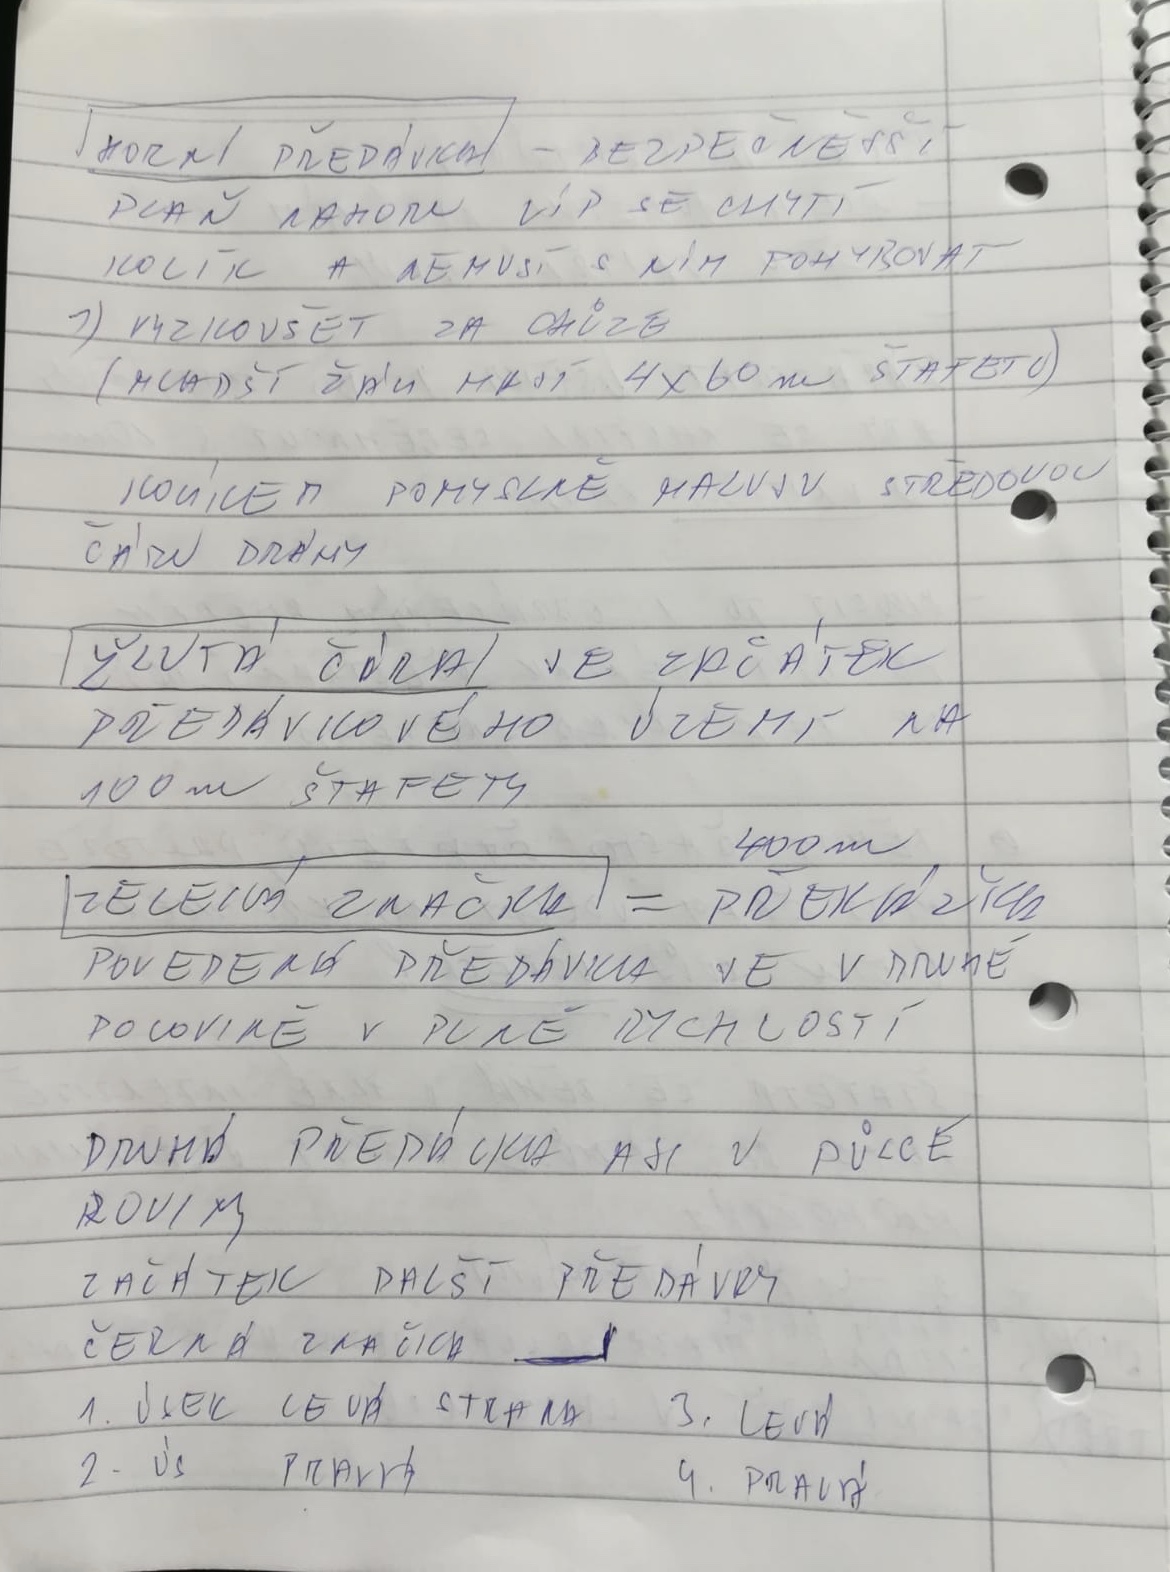 HORNÍ PŘEDÁVKA - BEZPEČNĚŠŠÍ
DLAŇ NAHORU LÍP SE CHYTÍ
KOLÍK A NEMUSÍ S NÍM POHYBOVAT
1) VYZKOUŠET ZA CHŮZE
(MLADŠÍ ŽÁCI MAJÍ 4x60m ŠTAFETU)
KOLÍKEM POMYSLNĚ MALUJU STŘEDOVOU
ČÁRU DRÁHY
ŽLUTÁ ČÁRA JE ZAČÁTEK
PŘEDÁVKOVÉHO ÚZEMÍ NA
100m ŠTAFETY
400m
ZELENÁ ZNAČKA = PŘEKÁŽKA
POVEDENÁ PŘEDÁVKA JE V DRUHÉ
POLOVINĚ V PLNÉ RYCHLOSTÍ
DRUHÁ PŘEDÁVKA ASI V PŮLCE
ROVINY
ZAČÁTEK DALŠÍ PŘEDÁVKY
ČERNÁ ZNAČKA
1. ÚSEK LEVÁ STRANA 3. LEVÁ
2. ÚS PRAVÁ 4. PRAVÁ